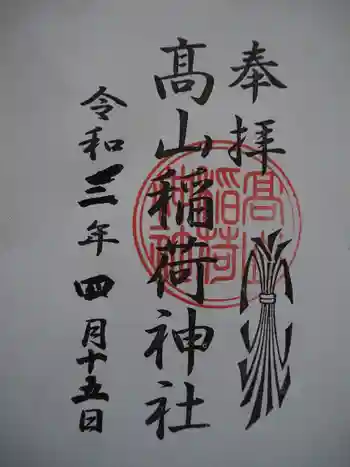 奉拝
髙山稲荷神社
令和三年四月十五日
髙山
稲荷
神社